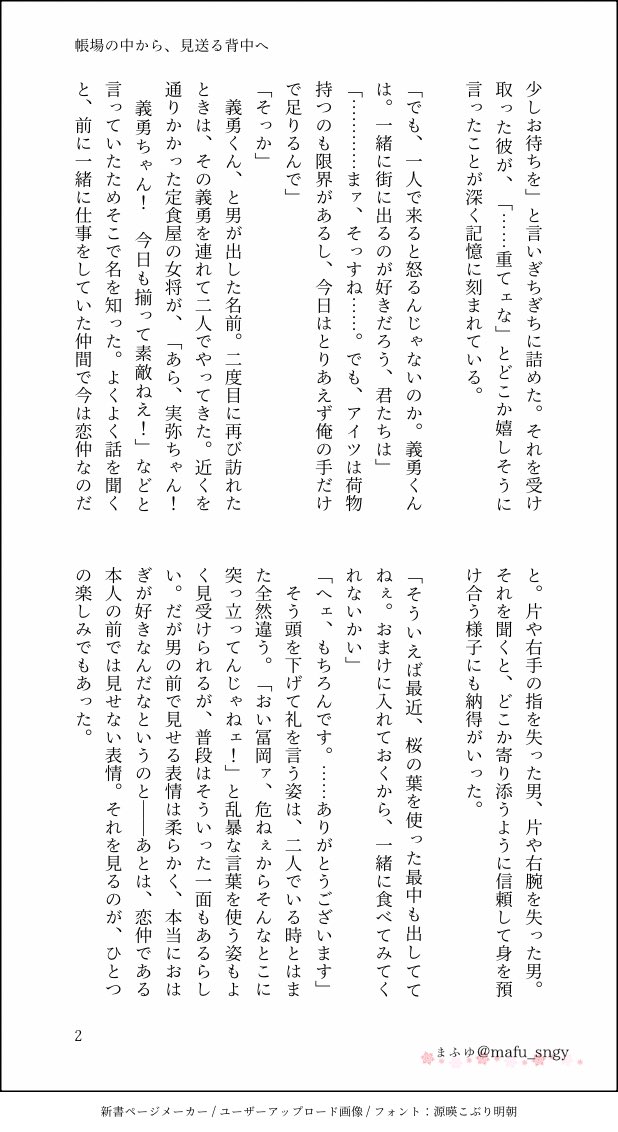 帳場の中から、見送る背中へ
少しお待ちを」と言いぎちぎちに詰めた。それを受け
取った彼が、「……重てェな」とどこか嬉しそうに
言ったことが深く記憶に刻まれている。
「でも、一人で来ると怒るんじゃないのか。義勇くん
は。一緒に街に出るのが好きだろう、君たちは」
「…………まァ、そっすね……。でも、アイツは荷物
持つのも限界があるし、今日はとりあえず俺の手だけ
で足りるんで」
「そっか」
　義勇くん、と男が出した名前。二度目に再び訪れた
ときは、その義勇を連れて二人でやってきた。近くを
通りかかった定食屋の女将が、「あら、実弥ちゃん！
　義勇ちゃん！　今日も揃って素敵ねえ！」などと
言っていたためそこで名を知った。よくよく話を聞く
と、前に一緒に仕事をしていた仲間で今は恋仲なのだ
と。片や右手の指を失った男、片や右腕を失った男。
それを聞くと、どこか寄り添うように信頼して身を預
け合う様子にも納得がいった。
「そういえば最近、桜の葉を使った最中も出してて
ねぇ。おまけに入れておくから、一緒に食べてみてく
れないかい」
「へェ、もちろんです。……ありがとうございます」
　そう頭を下げて礼を言う姿は、二人でいる時とはま
た全然違う。「おい冨岡ァ、危ねぇからそんなとこに
突っ立ってんじゃねェ！」と乱暴な言葉を使う姿もよ
く見受けられるが、普段はそういった一面もあるらし
い。だが男の前で見せる表情は柔らかく、本当におは
ぎが好きなんだなというのと――あとは、恋仲である
本人の前では見せない表情。それを見るのが、ひとつ
の楽しみでもあった。
2
まふゆ@mafu_sngy
新書ページメーカー / ユーザーアップロード画像 / フォント：源暎こぶり明朝